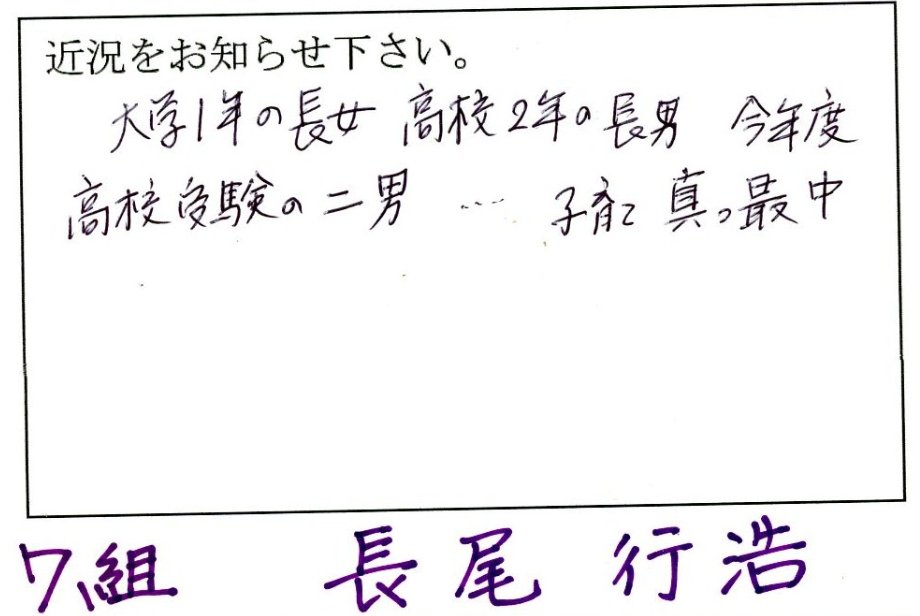 近況をお知らせ下さい。
大学1年の長女 高校2年の長男 今年度
高校受験の二男 … 子育て 真っ最中
7組 長尾 行浩